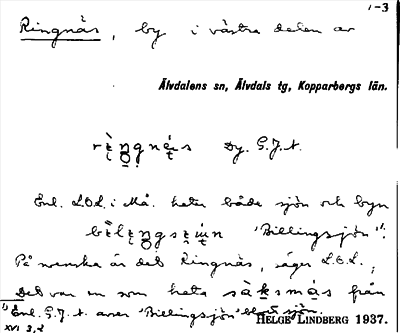 1-3
Ringnäs, by i västra delen av
Älvdalens sn, Älvdals tg, Kopparbergs län.
Dy. G.J.t.
Enl. L.O.L. i Må. heter både sjön och byn
"Billingsjön" 1).
På svenska är det Ringnäs, säger L.O.L.;
Det var en som hette från
1) Enl. G.J.t. avser "Billingsjön" blott sjön.
HELGE LINDBERG 1937.
XVI 3,2